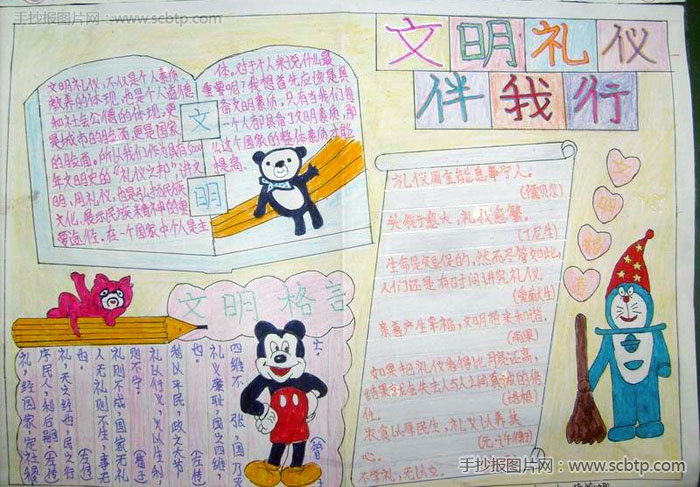 手抄报图片网：www.scbtp.com
文明礼仪
伴我行
文明礼仪，不仅是个人素质、
教养的体现，也是个人道德
和社会公德的体现。更
是城市的脸面，更是国家
的脸面。所以我们作为具有5000
年文明史的“礼仪之邦”，讲文
明，用礼仪，也是弘扬民族
文化、展示民族精神的重
要途径。在一个国家中个人是主
体。对于个人来说什么最
重要呢？我想首先应该是具
备文明素质。只有当我们每
一个人都具备了文明素质，那
么这个国家的整体素质才能
提高。
文
明
礼仪周全能息事宁人。
(儒贝尔)
头衔愈大，礼仪愈繁。
(丁尼生)
生命是短促的，然而尽管如此，
人们还是有时间讲究礼仪。
(爱献生)
亲善产生幸福，文明带来和谐。
(雨果)
如果把礼仪看得比月亮还高，
结果就会失去人与人之间真诚的信
任。
(培根)
衣食以厚民生，礼义以养其
心。
(元·许衡)
不学礼，无以立。
文
明
文明格言
四维不张，国乃灭
亡。
礼义廉耻，国之四维，
也。
礼以行义，义以生利，
利以平民，政之大节
人无礼则不生，事无
礼则不成，国家无礼
则不宁。
(荀子)
礼，天之经也，民之行
也。
(左传)
礼，经国家，定社稷，
序民人，利后嗣。
(左传)
手抄报图片网：www.scbtp.com